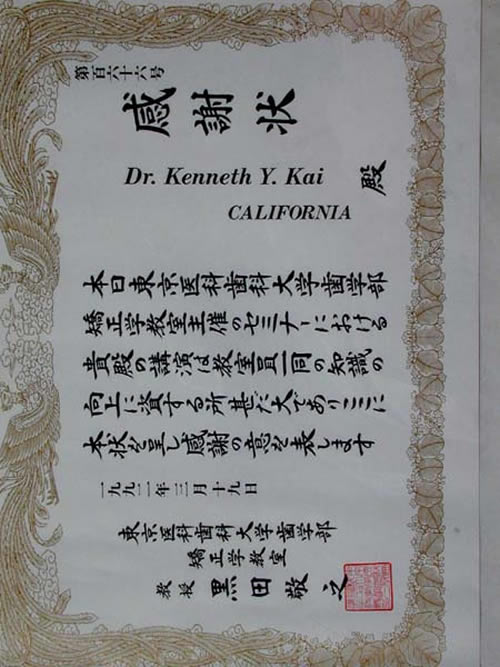 第百六十六号
感謝状
Dr. Kenneth Y. Kai
殿
CALIFORNIA
本日東京医科歯科大学歯学部
矯正学教室主催のセミナーにおける
貴殿の講演は教室員一同の知識の
向上に資する所甚だ大でありここに
本状を呈し感謝の意を表します
一九九二年三月十九日
東京医科歯科大学歯学部
矯正学教室
教授 黒田敬之